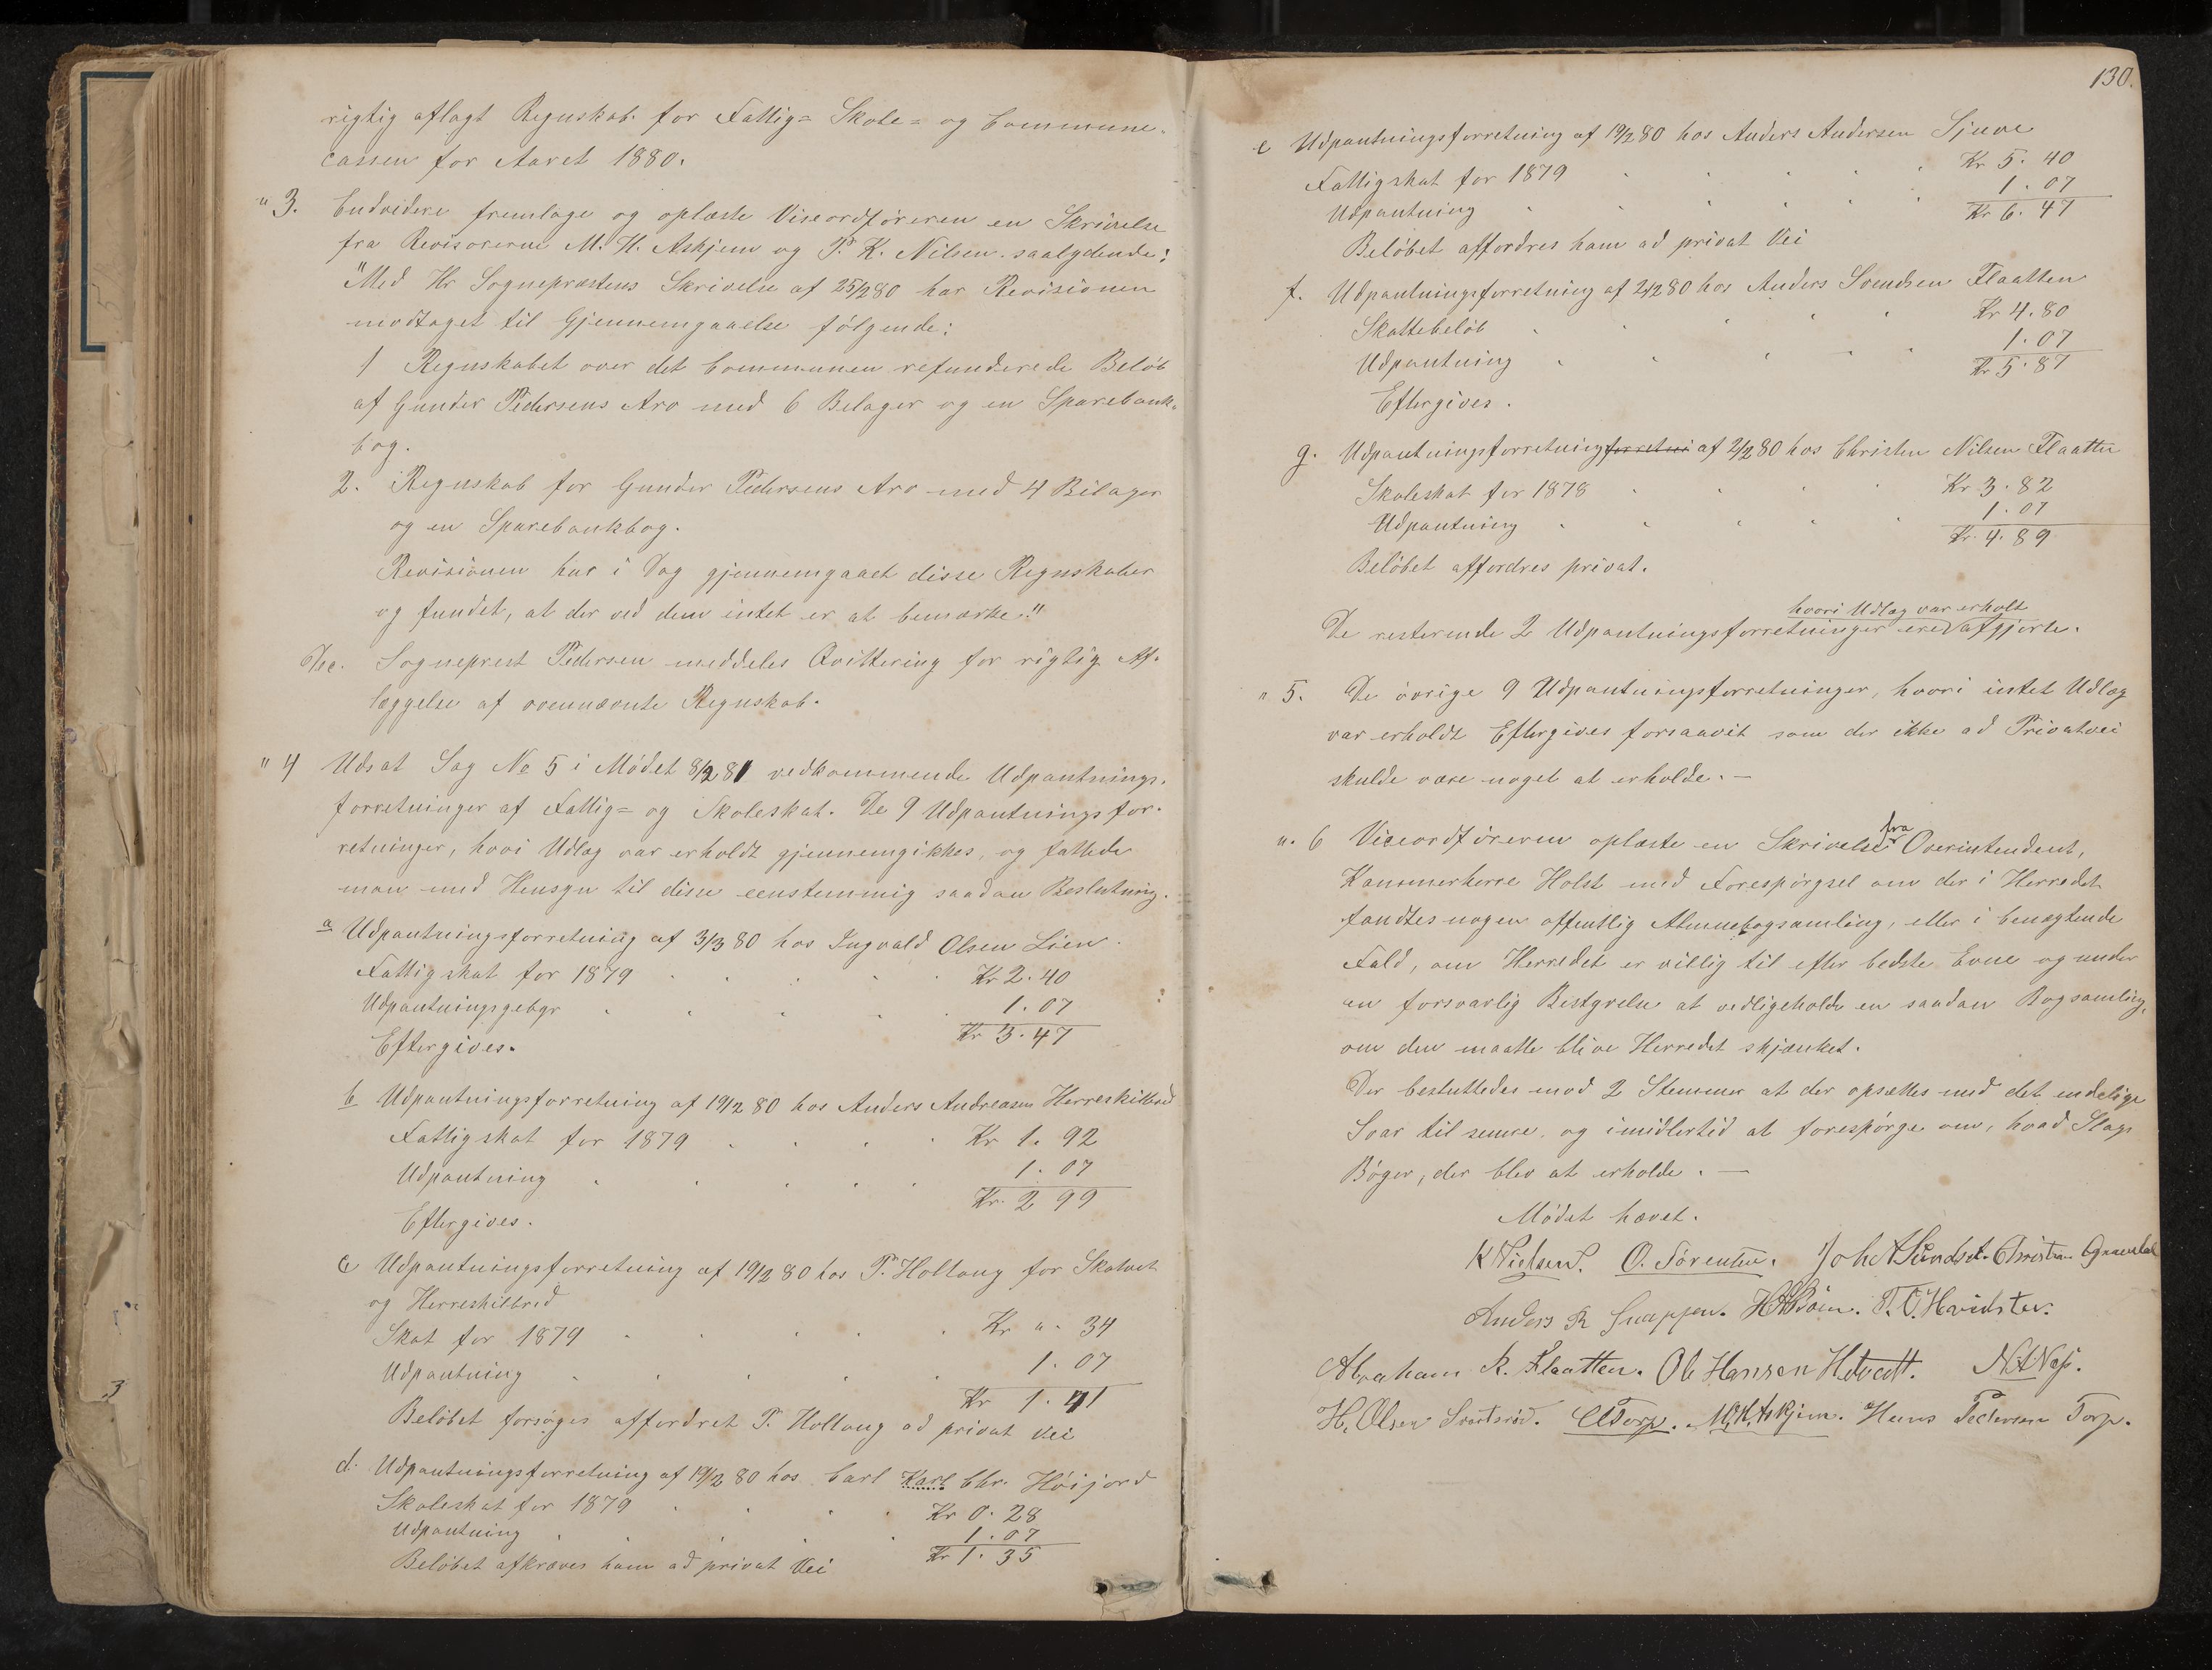 rigtig aflagt Regnskab for Fattig= Skole= og Commune-
cassen for Aaret 1880.
" 3. Endvidere fremlage og oplæste Viseordføreren en Skrivelse
fra Revisorerne M. H. Askjem og P. K. Nilsen. saalydende:
"Med Hr Sogneprestens Skrivelse af 25/2 80 har Revisionen
modtaget til Gjennemgaaelse følgende:
1 Regnskabet over det Communen refunderede Beløb
af Gunder Pedersens Arv med 6 Belager og en Sparebank-
bog.
2. Regnskab for Gunder Pedersens Arv med 4 Bilager
og en Sparebankbog.
Revisionen har i Dag gjennemgaaet disse Regnskaber
og fundet, at der ved dem intet er at bemærke."
Dec. Sogneprest Pedersen meddeles Qvittering for rigtig Af-
læggelse af ovennævnte Regnskab.
" 4 Udsat Sag No 5 i Mødet 8/2 81 vedkommende Udpantnings-
forretninger af Fattig= og Skoleskat. De 9 Udpantningsfor-
retninger, hvori Udlæg var erholdt gjennemgikkes, og fattede
man med Hensyn til disse eenstemmig saadan Beslutning.
a Udpantningsforretning af 3/3 80 hos Ingvald Olsen Lien.
Fattigskat for 1879 Kr 2.40
Udpantningsgebyr 1.07
Kr 3.47
Eftergives.
b Udpantningsforretning af 19/2 80 hos Anders Andreasen Herreskilbred
Fattigskat for 1879 Kr 1.92
Udpantning 1.07
Kr. 2 99
Eftergives.
c Udpantningsforretning af 19/2 80 hos P. Holtang for Skatvet
og Herreskilbred
Skat for 1879 Kr ". 34
Udpantning 1.07
Kr 1.41
Beløbet forsøges affordret P. Holtang ad privat Vei
d. Udpantningsforretning af 19/2 80 hos Carl Karl Chr. Høijord
Skoleskat for 1879 Kr 0.28
Udpantning 1.07
Kr 1.35
Beløbet afkræves ham ad privat Vei
130.
e Udpantningsforretning af 19/2 80 hos Anders Andersen Sjuve
Fattigskat for 1879 Kr 5.40
Udpantning 1.07
Kr 6.47
Beløbet affordres ham ad privat Vei
f. Udpantningsforretning af 2/2 80 hos Anders Svendsen Flaatten
Skattebeløb Kr 4.80
Udpantning 1.07
Kr 5.87
Eftergives.
g. Udpantningsforretningforretni af 2/2 80 hos Christen Nilsen Flaatten
Skoleskat for 1878 Kr 3.82
Udpantning 1.07
Kr. 4.89
Beløbet affordres privat.
hvori Udlæg var erholt
De resterende 2 Udpantningsforretninger ere afgjorte.
" 5. De øvrige 9 Udpantningsforretninger, hvori intet Udlæg
var erholdt Eftergives forsaavit som der ikke ad Privatvei
skulde være noget at erholde. —
". 6 Viceordføreren oplæste en Skrivelse fra Overintendent,
Kammerherre Holst med Forespørgsel om der i Herredet
fandtes nogen offentlig Almuebogsamling, eller i benægtende
Fald, om Herredet er villig til efter bedste Evne og under
en forsvarlig Bestyrelse at vedligeholde en saadan Bogsamling,
om den maatte blive Herredet skjænket.
Der besluttedes mod 2 Stemmer at der opsættes med det endelige
Svar til senere, og imidlertid at forespørge om, hvad Slags
Bøger, der blev at erholde. —
Mødet hævet.
K Nielsen. O. Sørensen. Joh A Sundset. Christian Gravdal
Anders R Snappen. H A Bøen. T. O. Hvidsten.
Abraham R. Flaatten. Ole Hansen Hotvedt. N A Næs.
H. Olsen Svartsrød. C Torp. M. H. Askjem. Hans Pedersen Torp.